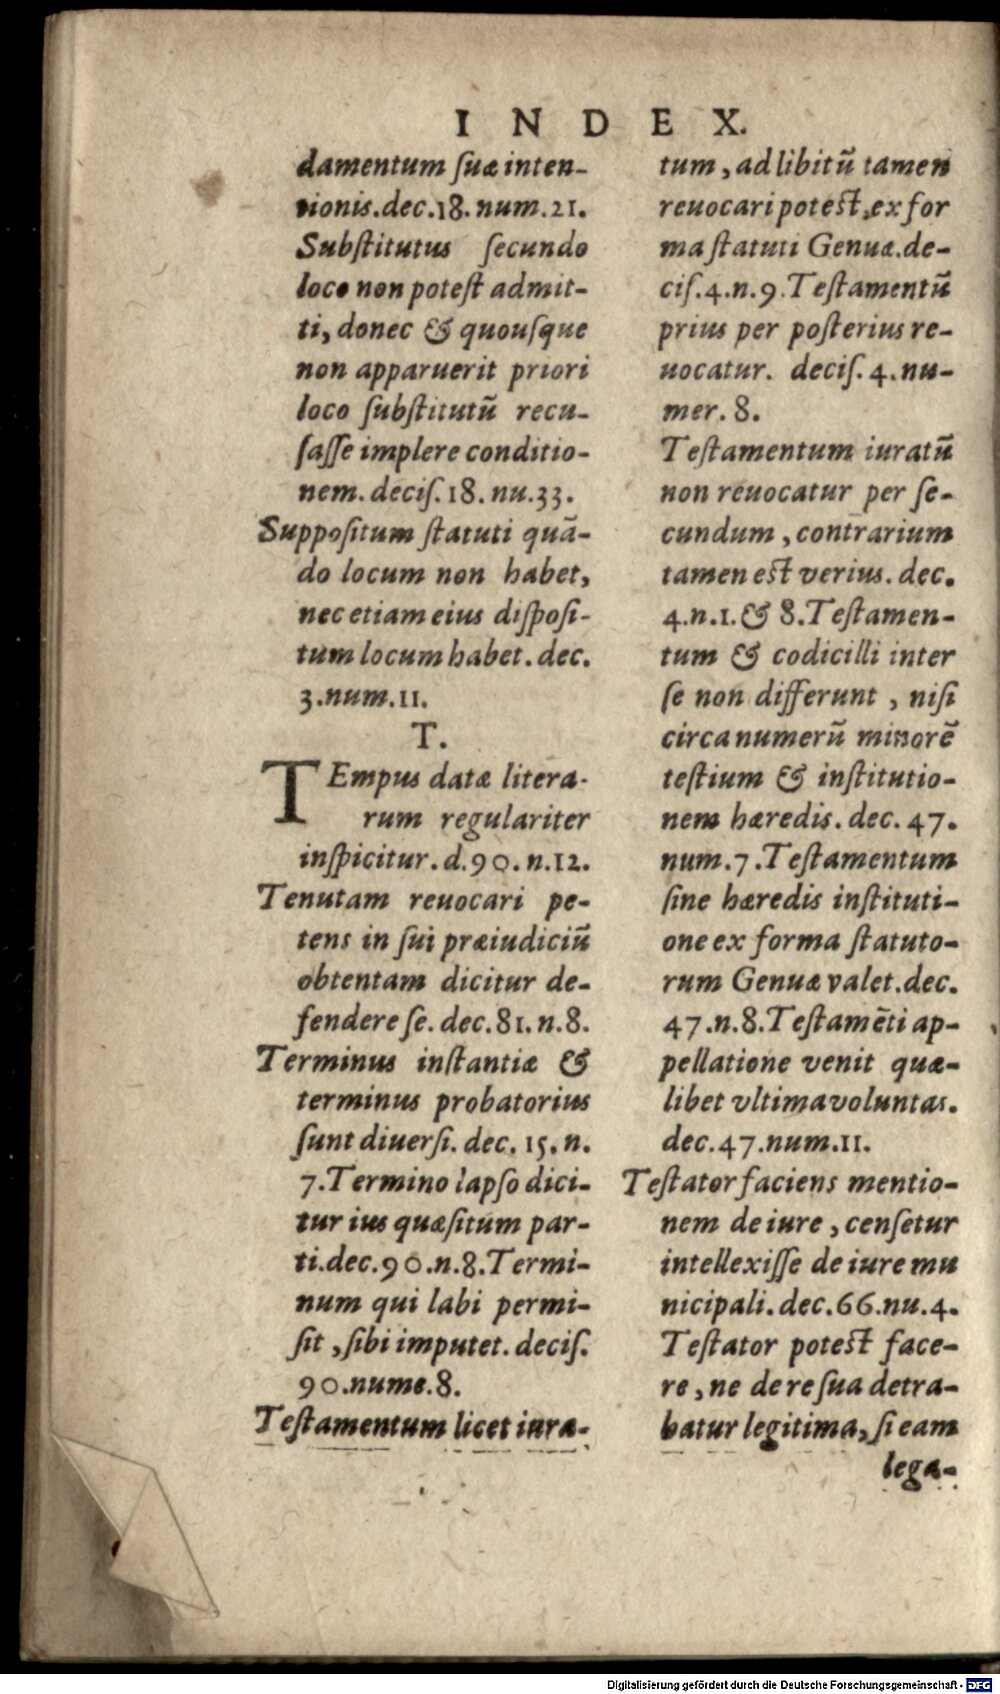 INDEX.
damentum ſuæ inten-
tionis.dec.18.num.21.
Subſtitutus ſecundo
loco non poteſt admit-
ti, donec & quouſque
non apparuerit priori
loco ſubſtitutũ recu-
ſaſſe implere conditio-
nem.deciſ.18.nu.33.
Suppoſitum ſtatuti quã-
do locum non habet,
nec etiam eius diſpoſi-
tum locum habet.dec.
3.num.11.
T.
TEmpus datæ litera-
rum regulariter
inſpicitur.d.90.n.12.
Tenutam reuocari pe-
tens in ſui præiudiciũ
obtentam dicitur de-
fendere ſe.dec.81.n.8.
Terminus inſtantiæ &
terminus probatorius
ſunt diuerſi.dec.15.n.
7.Termino lapſo dici-
tur ius quæſitum par-
ti.dec.90.n.8.Termi-
num qui labi permi-
ſit, ſibi imputet.deciſ.
90.nume.8.
Teſtamentum licet iura-
tum, ad libitũ tamen
reuocari poteſt, ex for
ma ſtatuti Genuæ.de-
ciſ.4.n.9.Teſtamentũ
prius per poſterius re-
uocatur. deciſ.4.nu-
mer.8.
Teſtamentum iuratũ
non reuocatur per ſe-
cundum, contrarium
tamen eſt verius.dec.
4.n.1.& 8.Teſtamen-
tum & codicilli inter
ſe non differunt, niſi
circa numerũ minorẽ
teſtium & inſtitutio-
nem hæredis.dec.47.
num.7.Teſtamentum
ſine hæredis inſtituti-
one ex forma ſtatuto-
rum Genuæ valet.dec.
47.n.8.Teſtamẽti ap-
pellatione venit quæ-
libet vltima voluntas.
dec.47.num.11.
Teſtator faciens mentio-
nem de iure, cenſetur
intellexiſſe de iure mu
nicipali.dec.66.nu.4.
Teſtator poteſt face-
re, ne de re ſua detra-
batur legitima, ſi eam
lega-
Digitalisierung gefördert durch die Deutsche Forschungsgemeinschaft - DFG